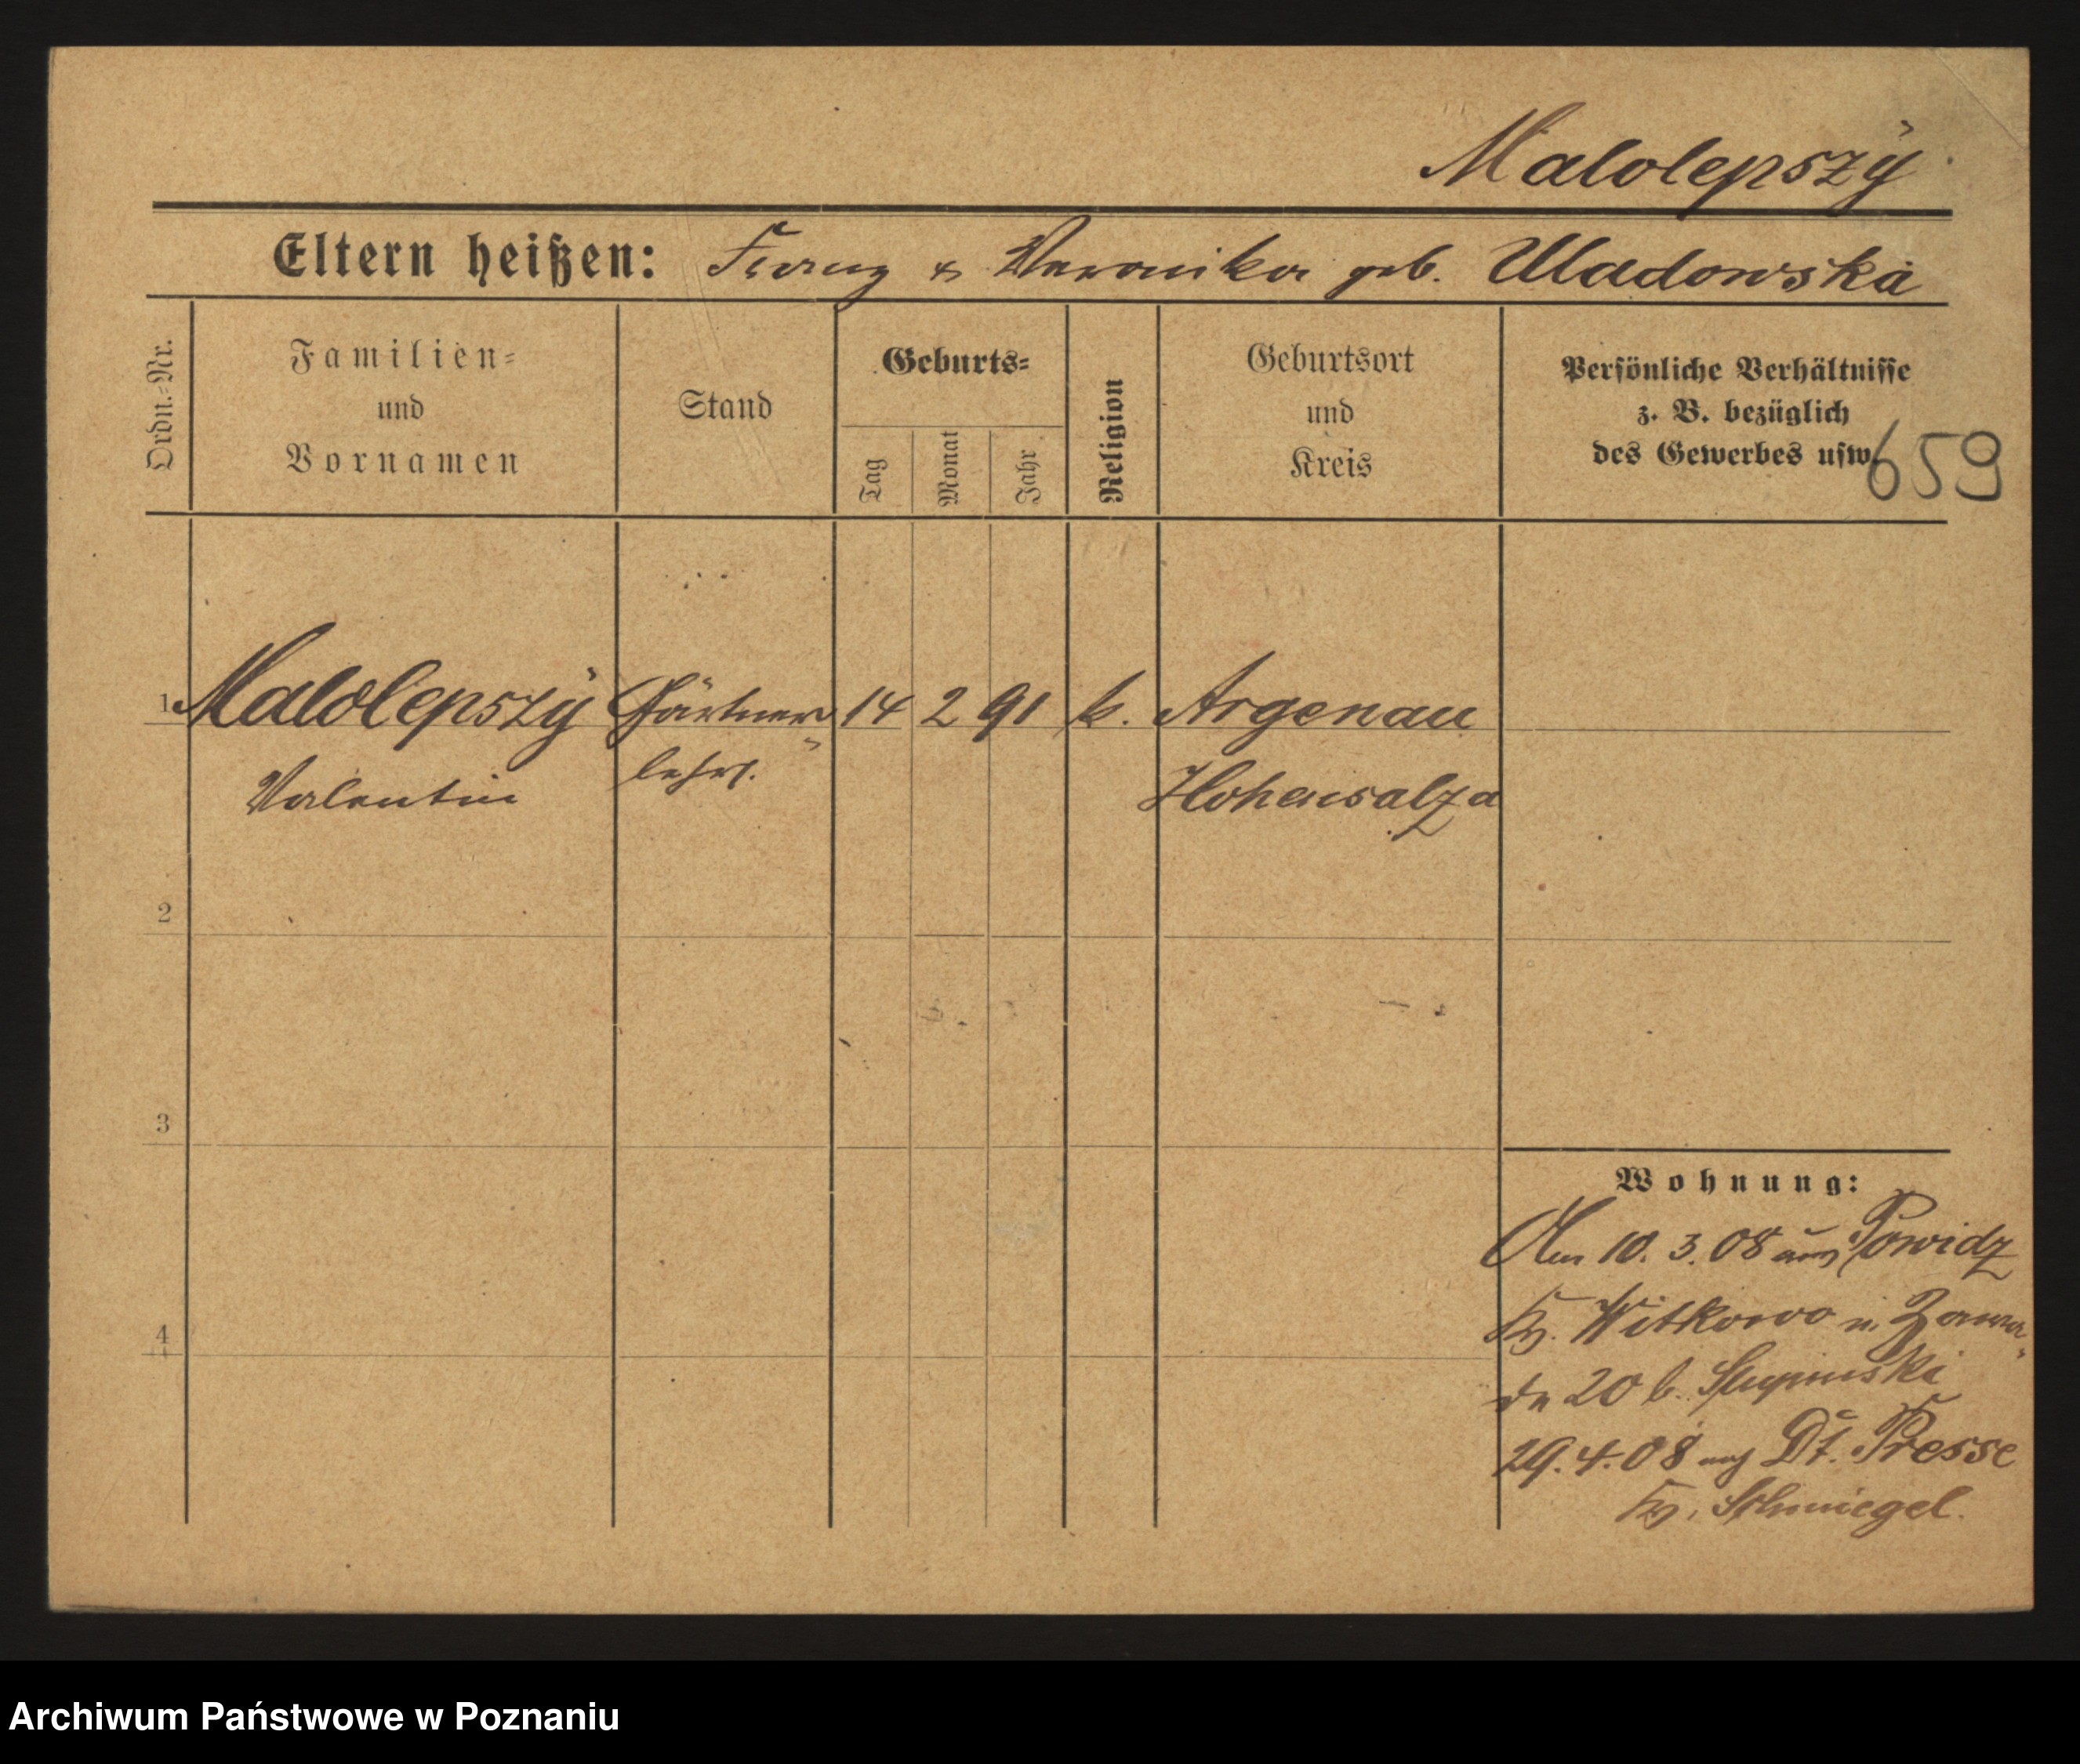 Malolepszy
Eltern heißen: Franz & Veronika geb. Wladowska
Ordn.-Nr.
Familien-
und
Vornamen
Stand
Geburts-
Tag
Monat
Jahr
Religion
Geburtsort
und
Kreis
Persönliche Verhältnisse
z. B. bezüglich
des Gewerbes usw.
659
1 Malolepszy Gärtner 14 2 91 k. Argenau
Valentin lehrl. Hohensalza
2
3
4
Wohnung:
Am 10. 3. 08 aus Powidz
Kr. Witkowo n. Zawa-
de 20 b.
29. 4. 08 nach Dt. Presse
Kr. Schmiegel.
Archiwum Państwowe w Poznaniu